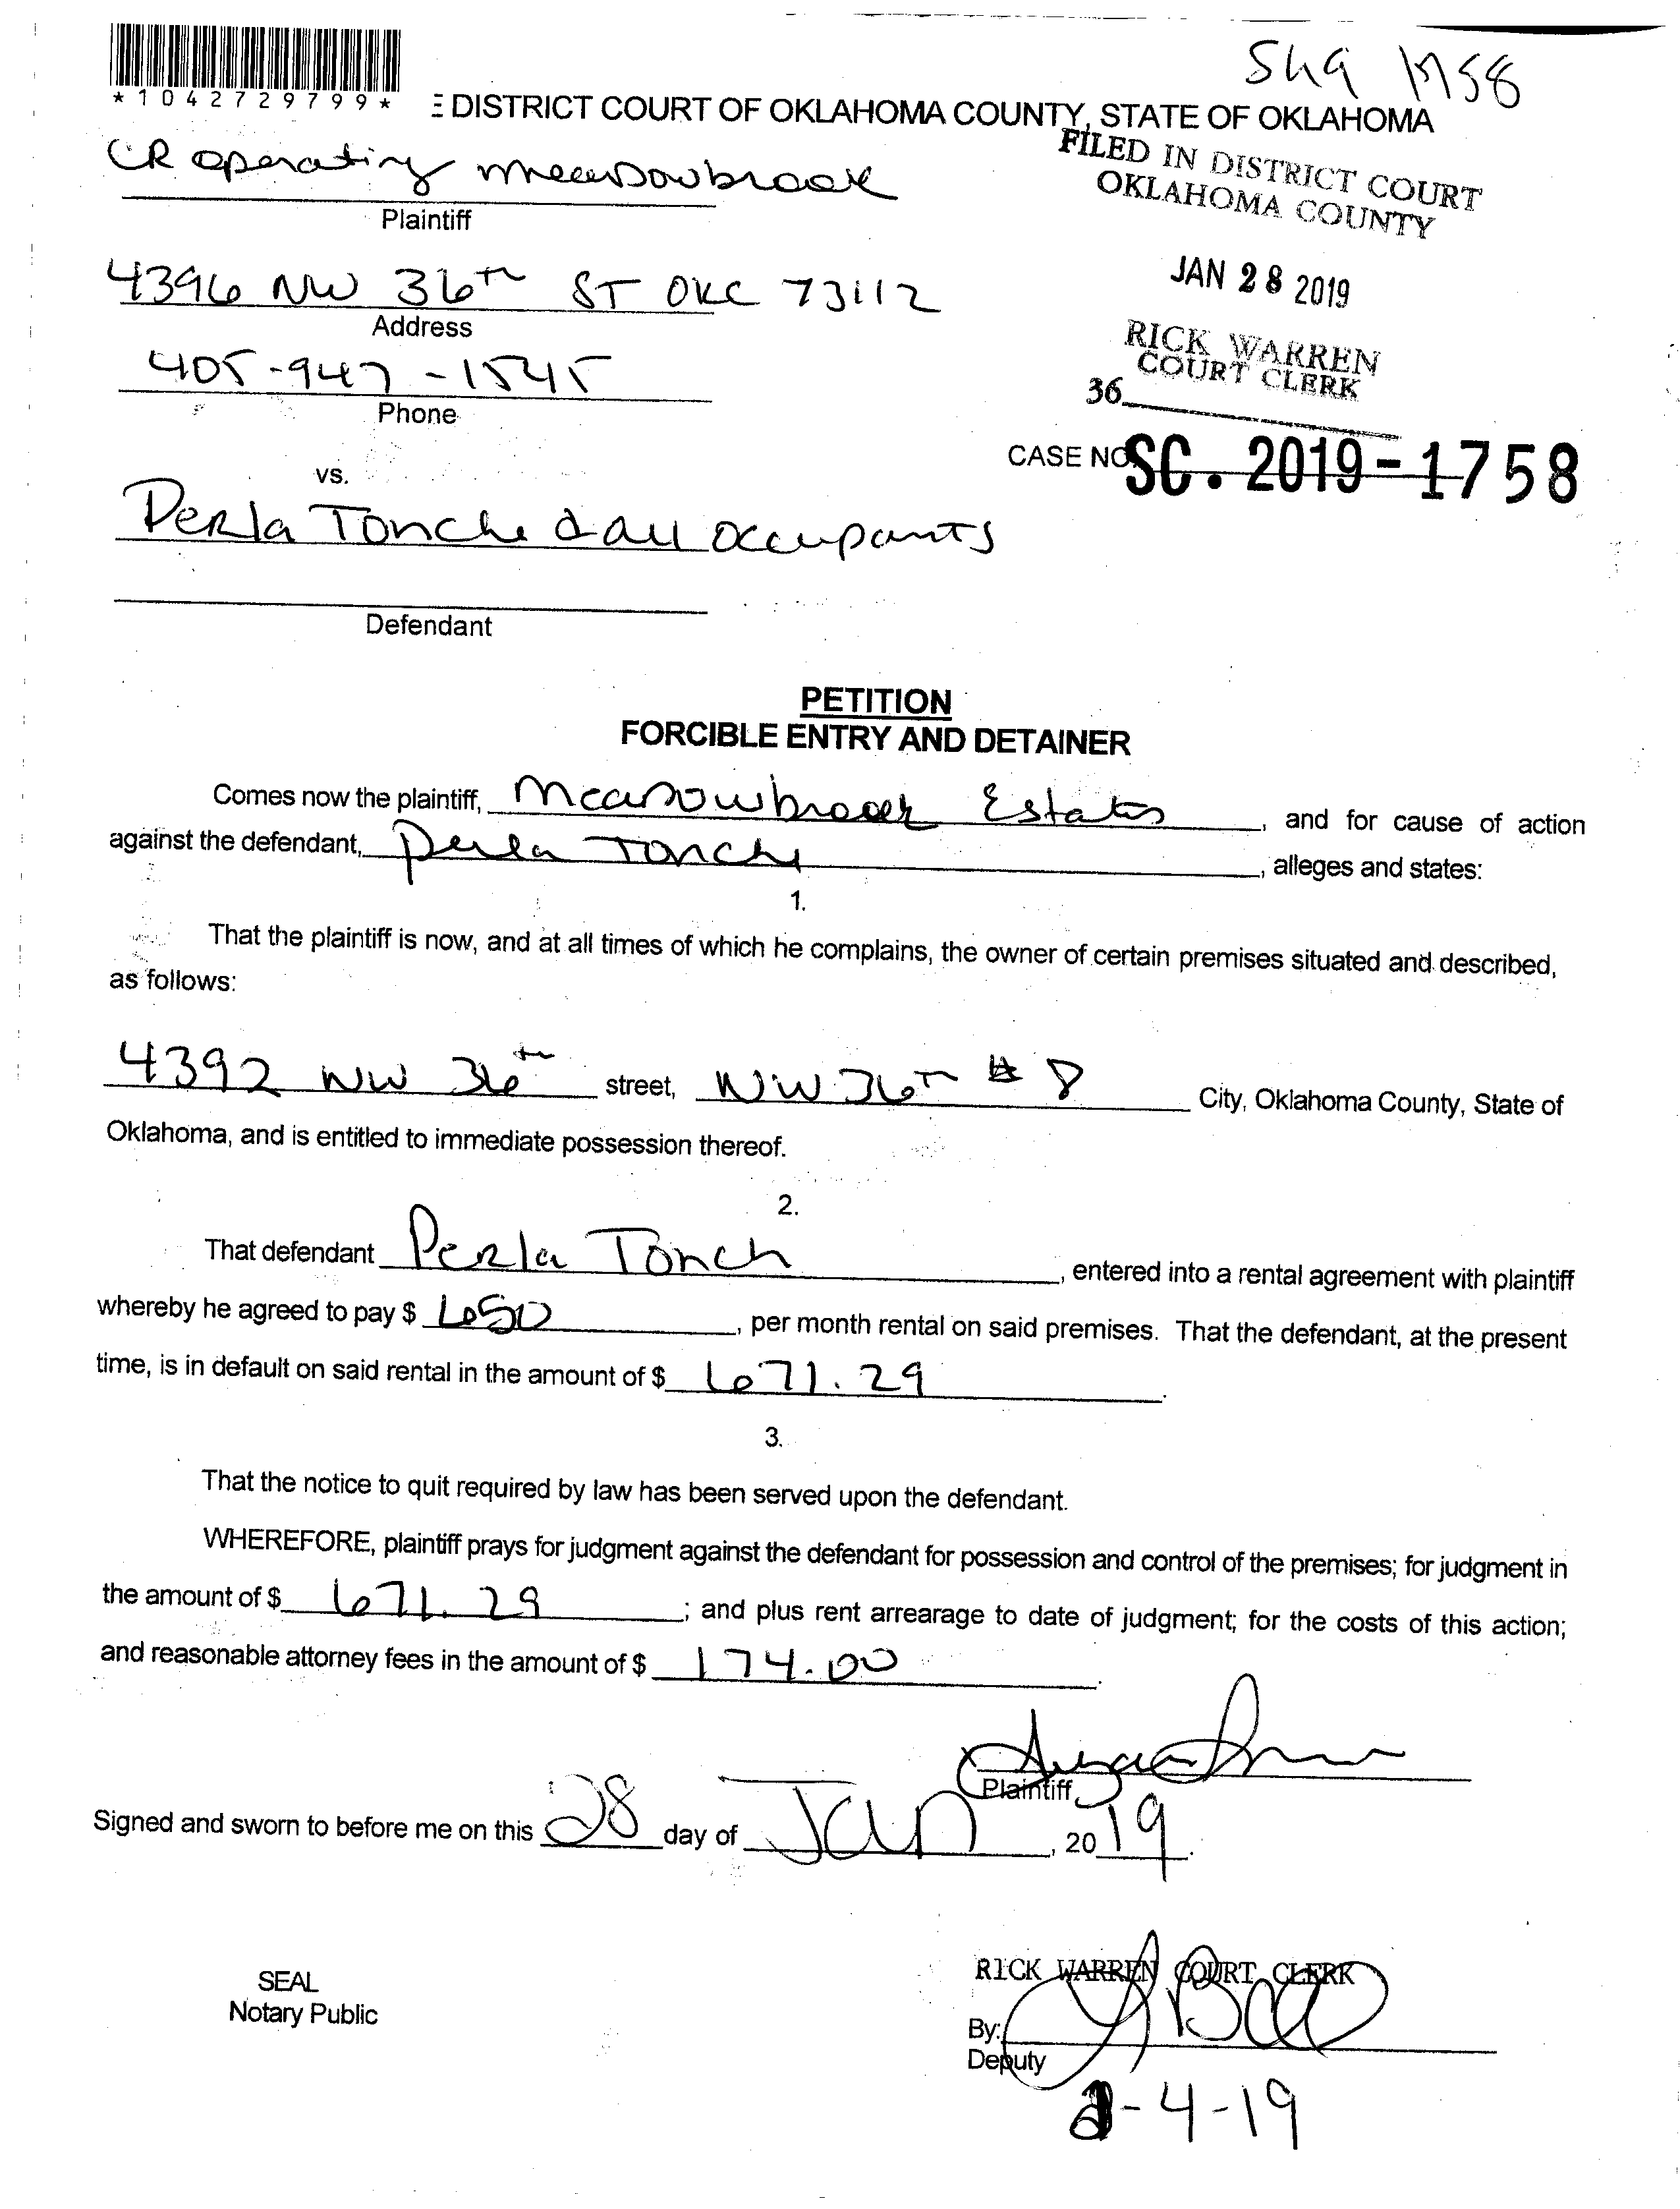 Sha 1758
*1042729799*
E DISTRICT COURT OF OKLAHOMA COUNTY, STATE OF OKLAHOMA
CR operating meadowbrook
Plaintiff
FILED IN DISTRICT COURT
OKLAHOMA COUNTY
4396 NW 36th ST OKC 73112
Address
JAN 28 2019
405-947-1545
Phone
RICK WARREN
COURT CLERK
36
CASE NO. SC. 2019-1758
vs.
Perla Tonche & all occupants
Defendant
PETITION
FORCIBLE ENTRY AND DETAINER
Comes now the plaintiff, Meadowbrook Estates, and for cause of action
against the defendant, Perla Tonche, alleges and states:
1.
That the plaintiff is now, and at all times of which he complains, the owner of certain premises situated and described,
as follows:
4392 NW 36th street, NW 36th # 8 City, Oklahoma County, State of
Oklahoma, and is entitled to immediate possession thereof.
2.
That defendant Perla Tonch, entered into a rental agreement with plaintiff
whereby he agreed to pay $ 650, per month rental on said premises. That the defendant, at the present
time, is in default on said rental in the amount of $ 671.29.
3.
That the notice to quit required by law has been served upon the defendant.
WHEREFORE, plaintiff prays for judgment against the defendant for possession and control of the premises; for judgment in
the amount of $ 671.29; and plus rent arrearage to date of judgment; for the costs of this action;
and reasonable attorney fees in the amount of $ 174.00.
Plaintiff
Signed and sworn to before me on this 28 day of Jan, 2019.
SEAL
Notary Public
RICK WARREN COURT CLERK
By:
Deputy
2-4-19